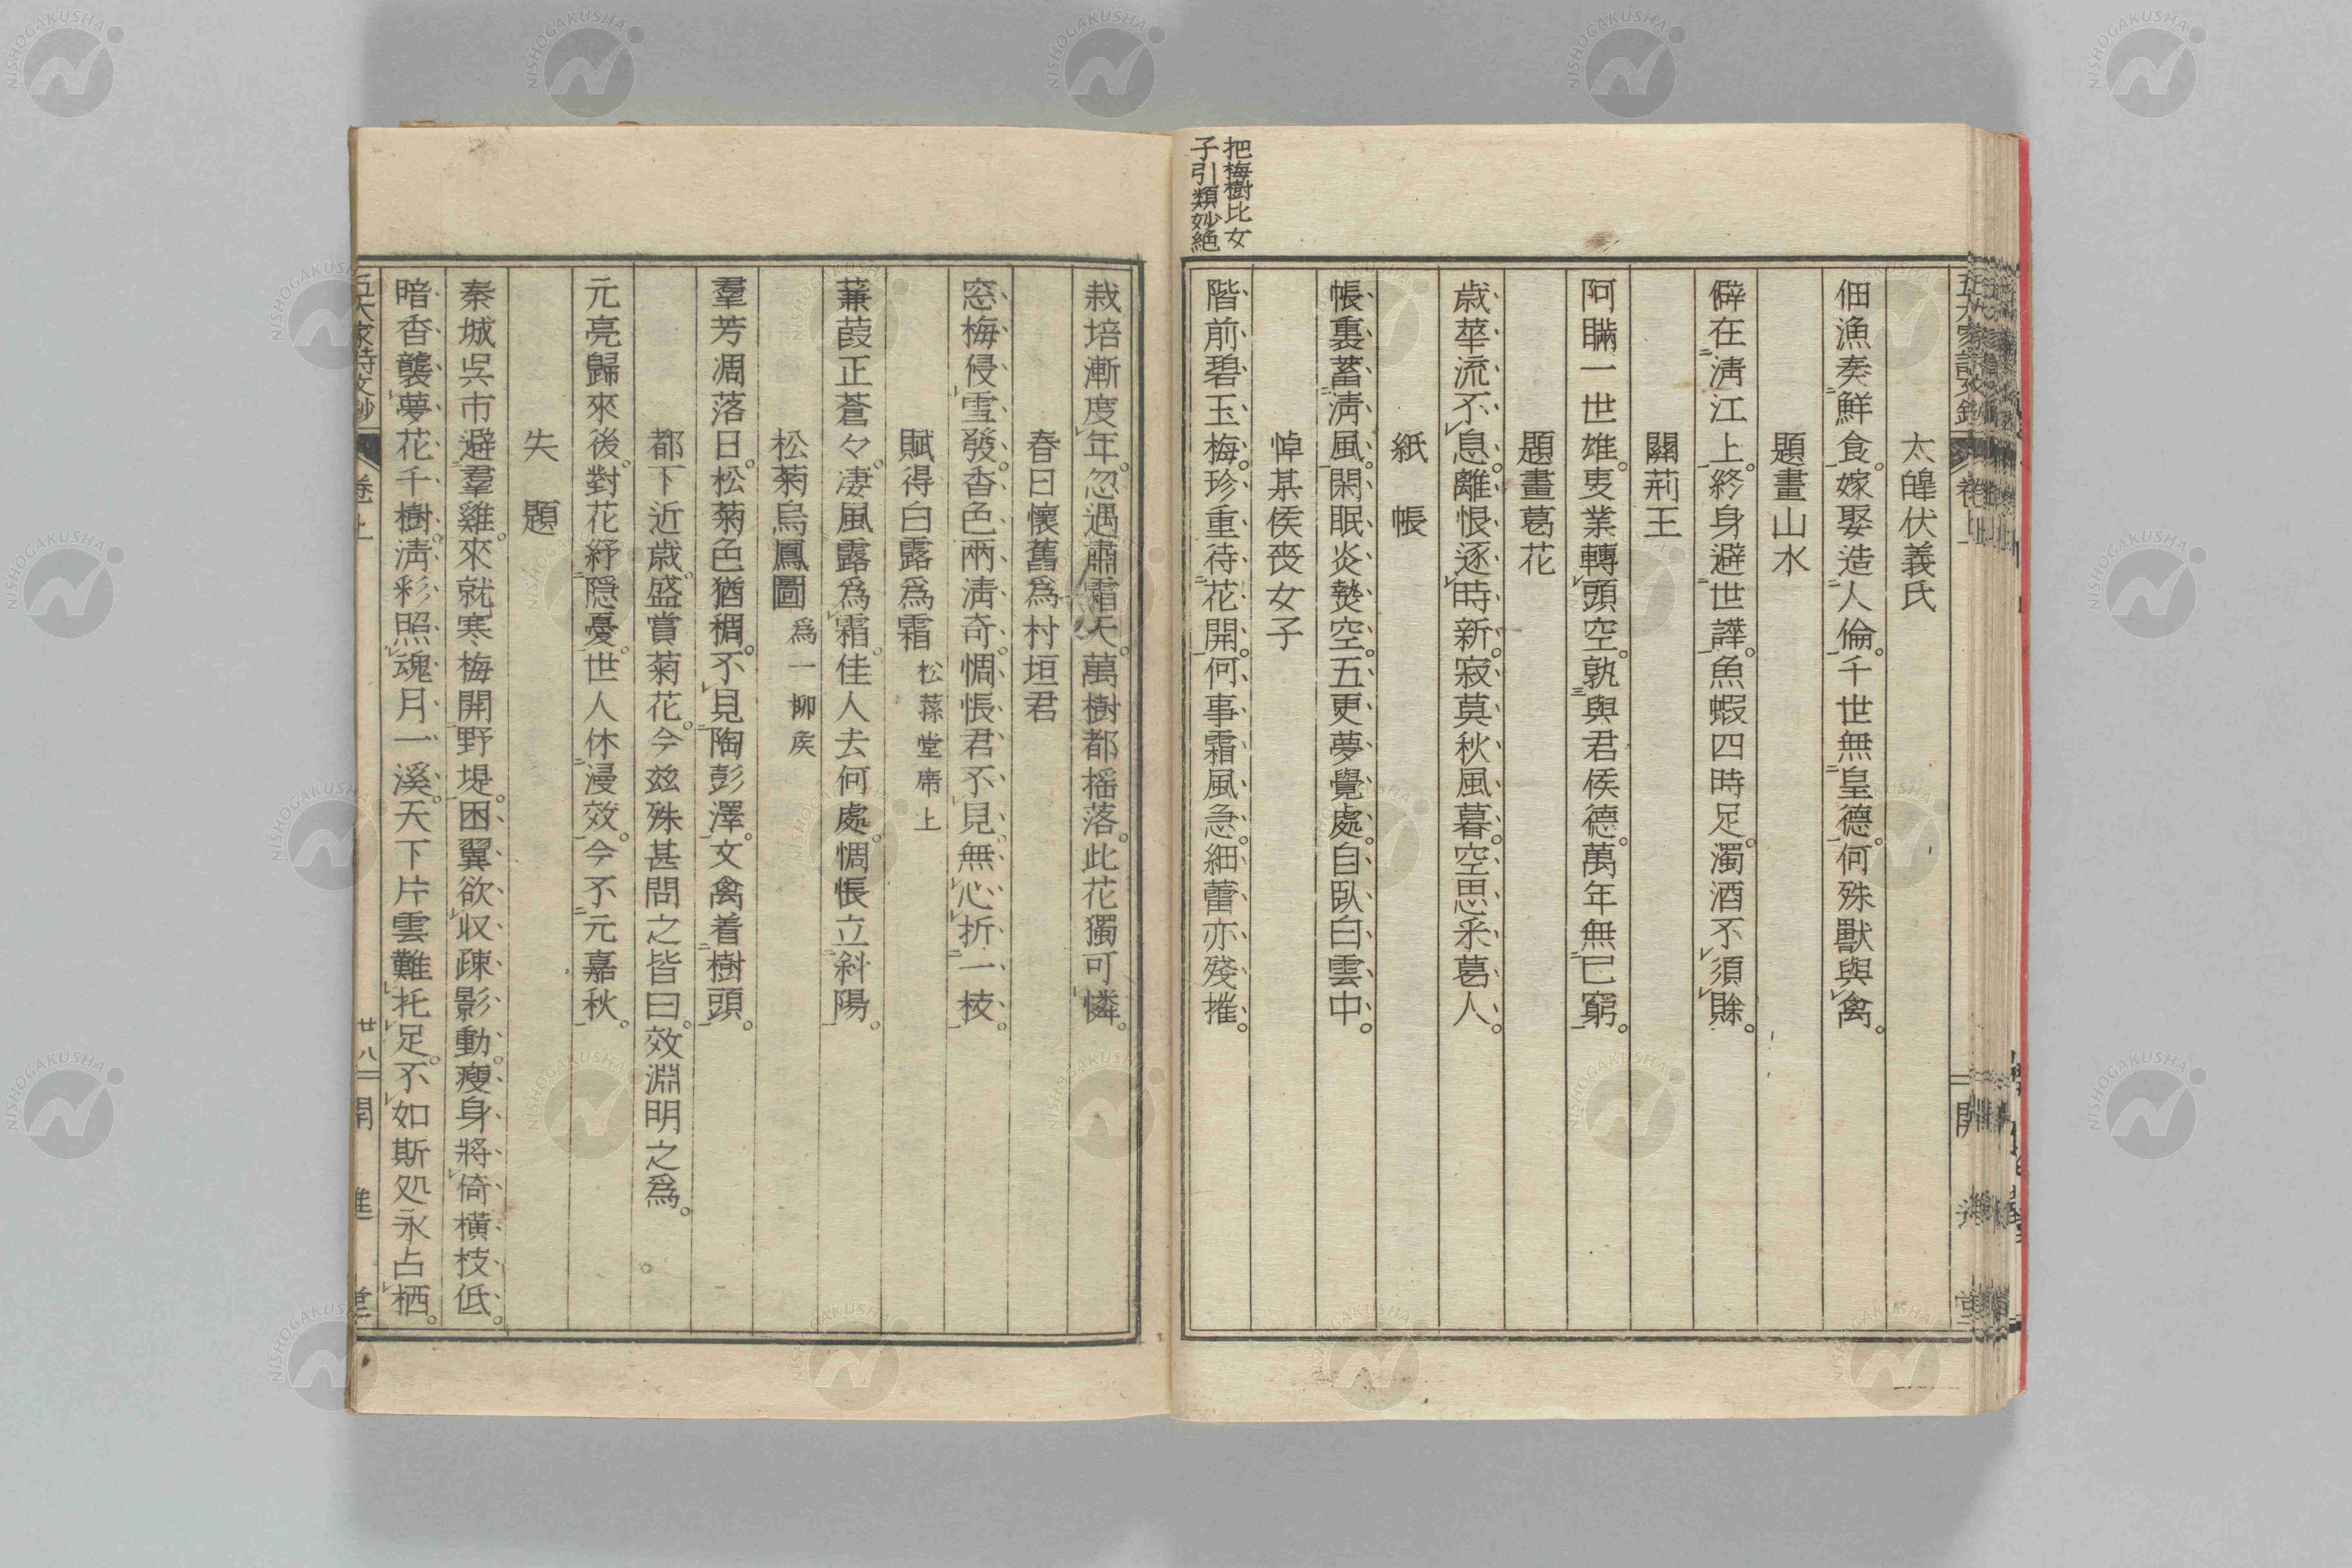 把梅樹比女
子引類妙絶
太皥伏義氏
佃漁奏鮮食。嫁娶造人倫。千世無皇德。何殊獸與禽。
題畫山水
僻在淸江上。終身避世譁。魚蝦四時足。濁酒不須賖。
關荊王
阿瞞一世雄。吏業轉頭空。孰與君侯德。萬年無已窮。
題畫葛花
歳華流不息。離恨逐時新。寂莫秋風暮。空思采葛人。
紙帳
帳裏蓄淸風。閑眠炎𤍠空。五更夢覺處。自臥白雲中。
悼某侯喪女子
階前碧玉梅。珍重待花開。何事霜風急。細蕾亦殘摧。
栽培漸度年。忽遇肅霜天。萬樹都摇落。此花獨可憐。
春日懷舊爲村垣君
窓梅侵雪發。香色兩淸奇。惆悵君不見。無心折一枝。
賦得白露爲霜 松蓀堂席上
蒹葭正蒼々。凄風露爲霜。佳人去何處。惆悵立斜陽。
松菊烏鳳圖 爲一柳矦
羣芳凋落日。松菊色猶稠。不見陶彭澤。文禽着樹頭。
都下近歳。盛賞菊花。今玆殊甚問之皆曰。效淵明之爲。
元亮歸來後。對花紓隠憂。世人休漫效。今不元嘉秋。
失題
秦城呉市避羣雞。來就寒梅開野堤。困翼欲収疎影動。瘦身將倚橫枝低。
暗香襲夢花千樹。淸彩照魂月一溪。天下片雲難托足。不如斯処永占栖。
五大家詩文鈔 卷上 廿八 開進堂